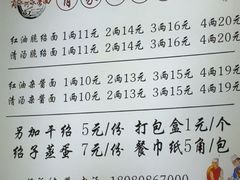 红油脆绍面 1两11元 2两14元 3两16元 4两20元
清汤脆绍面 1两11元 2两14元 3两16元 4两20元
红油杂酱面 1两10元 2两13元 3两15元 4两19元
清汤杂酱面 1两10元 2两13元 3两15元 4两19元
另加干绍 5元/份 打包盒1元/个
绍子蒸蛋 7元/份 餐巾纸5角/包
18080867000